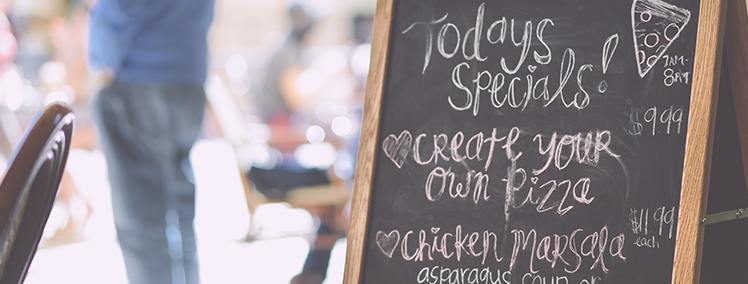 Todays
Specials!
7AM-
8PM
$9.99
♡Create your
own Pizza
$11.99
each
♡Chicken Marsala
asparagus soup or